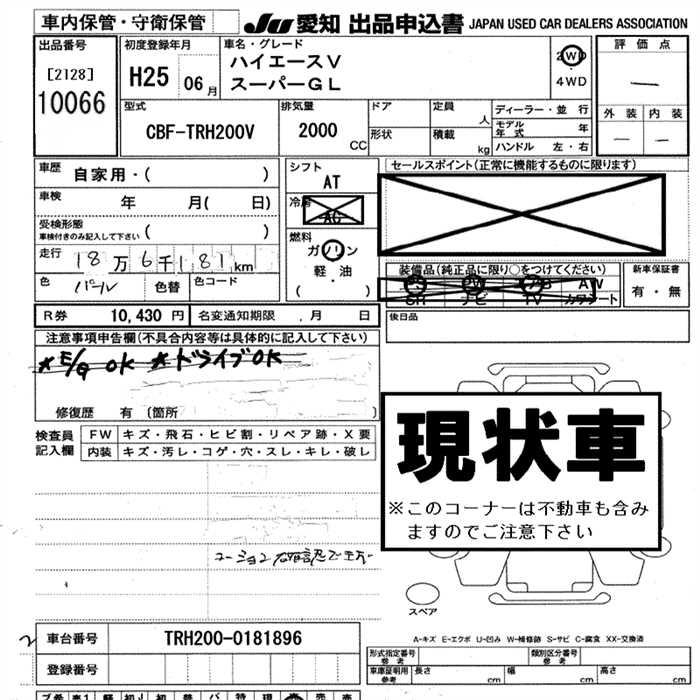 車内保管・守衛保管
JU 愛知 出品申込書 JAPAN USED CAR DEALERS ASSOCIATION
出品番号
[2128]
10066
初度登録年月
H25 06月
車名・グレード
ハイエースV
スーパーGL
2WD
4WD
評価点
—
外装 内装
— —
型式
CBF-TRH200V
排気量
2000 CC
ドア
形状
定員 人
積載 kg
ディーラー・並行
モデル年式 年
ハンドル 左・右
車歴
自家用・( )
車検
年 月( 日)
受検形態
車検付きのみ記入して下さい ( )
走行 18万6千181km
色 パール 色替 色コード
シフト
AT
冷房
AC
燃料
ガソリン
軽・油
( )
セールスポイント(正常に機能するものに限ります)
装備品(純正品に限り○をつけてください)
SR PW PS AW
SH ナビ TV カワシート
新車保証書
有・無
R券 10,430 円 名変通知期限 . 月 日
後日品
注意事項申告欄(不具合内容等は具体的に記入して下さい)
*E/G OK *ドライブOK
修復歴 有 (箇所 )
検査員記入欄
FW キズ・飛石・ヒビ割・リペア跡・X要
内装 キズ・汚レ・コゲ・穴・スレ・キレ・破レ
現状車
※このコーナーは不動車も含みますのでご注意下さい
スペア
A-キズ E-エクボ U-凹み W-補修跡 S-サビ C-腐食 XX-交換済
車台番号 TRH200-0181896
登録番号
形式指定番号
参考
類別区分番号
参考
車庫証明用
参考
長さ cm 幅 cm 高さ cm